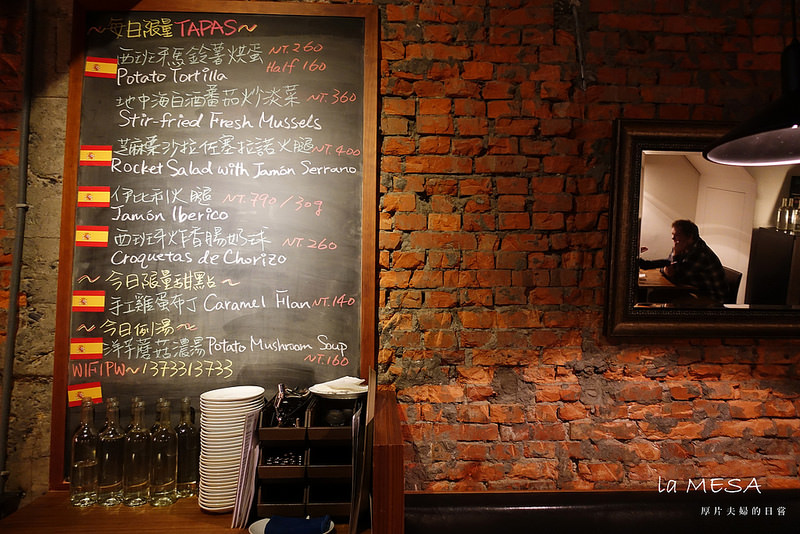 ~每日限量TAPAS~
西班牙馬鈴薯烘蛋 NT.260
Potato Tortilla Half 160
地中海白酒番茄炒淡菜 NT.360
Stir-fried Fresh Mussels
芝麻葉沙拉佐塞拉諾火腿 NT.400
Rocket Salad with Jamón Serrano
伊比利火腿 NT.790/30g
Jamón Iberico
西班牙炸香腸奶球 NT.260
Croquetas de Chorizo
~今日限量甜點~
手工雞蛋布丁 Caramel Flan NT.140
~今日例湯~
洋芋蘑菇濃湯 Potato Mushroom Soup
NT.160
WIFI PW~1373313733
La MESA
厚片夫婦的日嘗